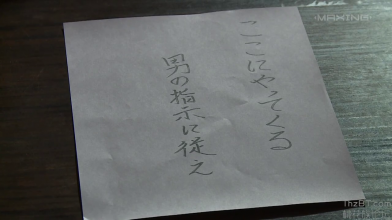 ここにやってくる
男の指示に従え
MAXING
ThzBT.com